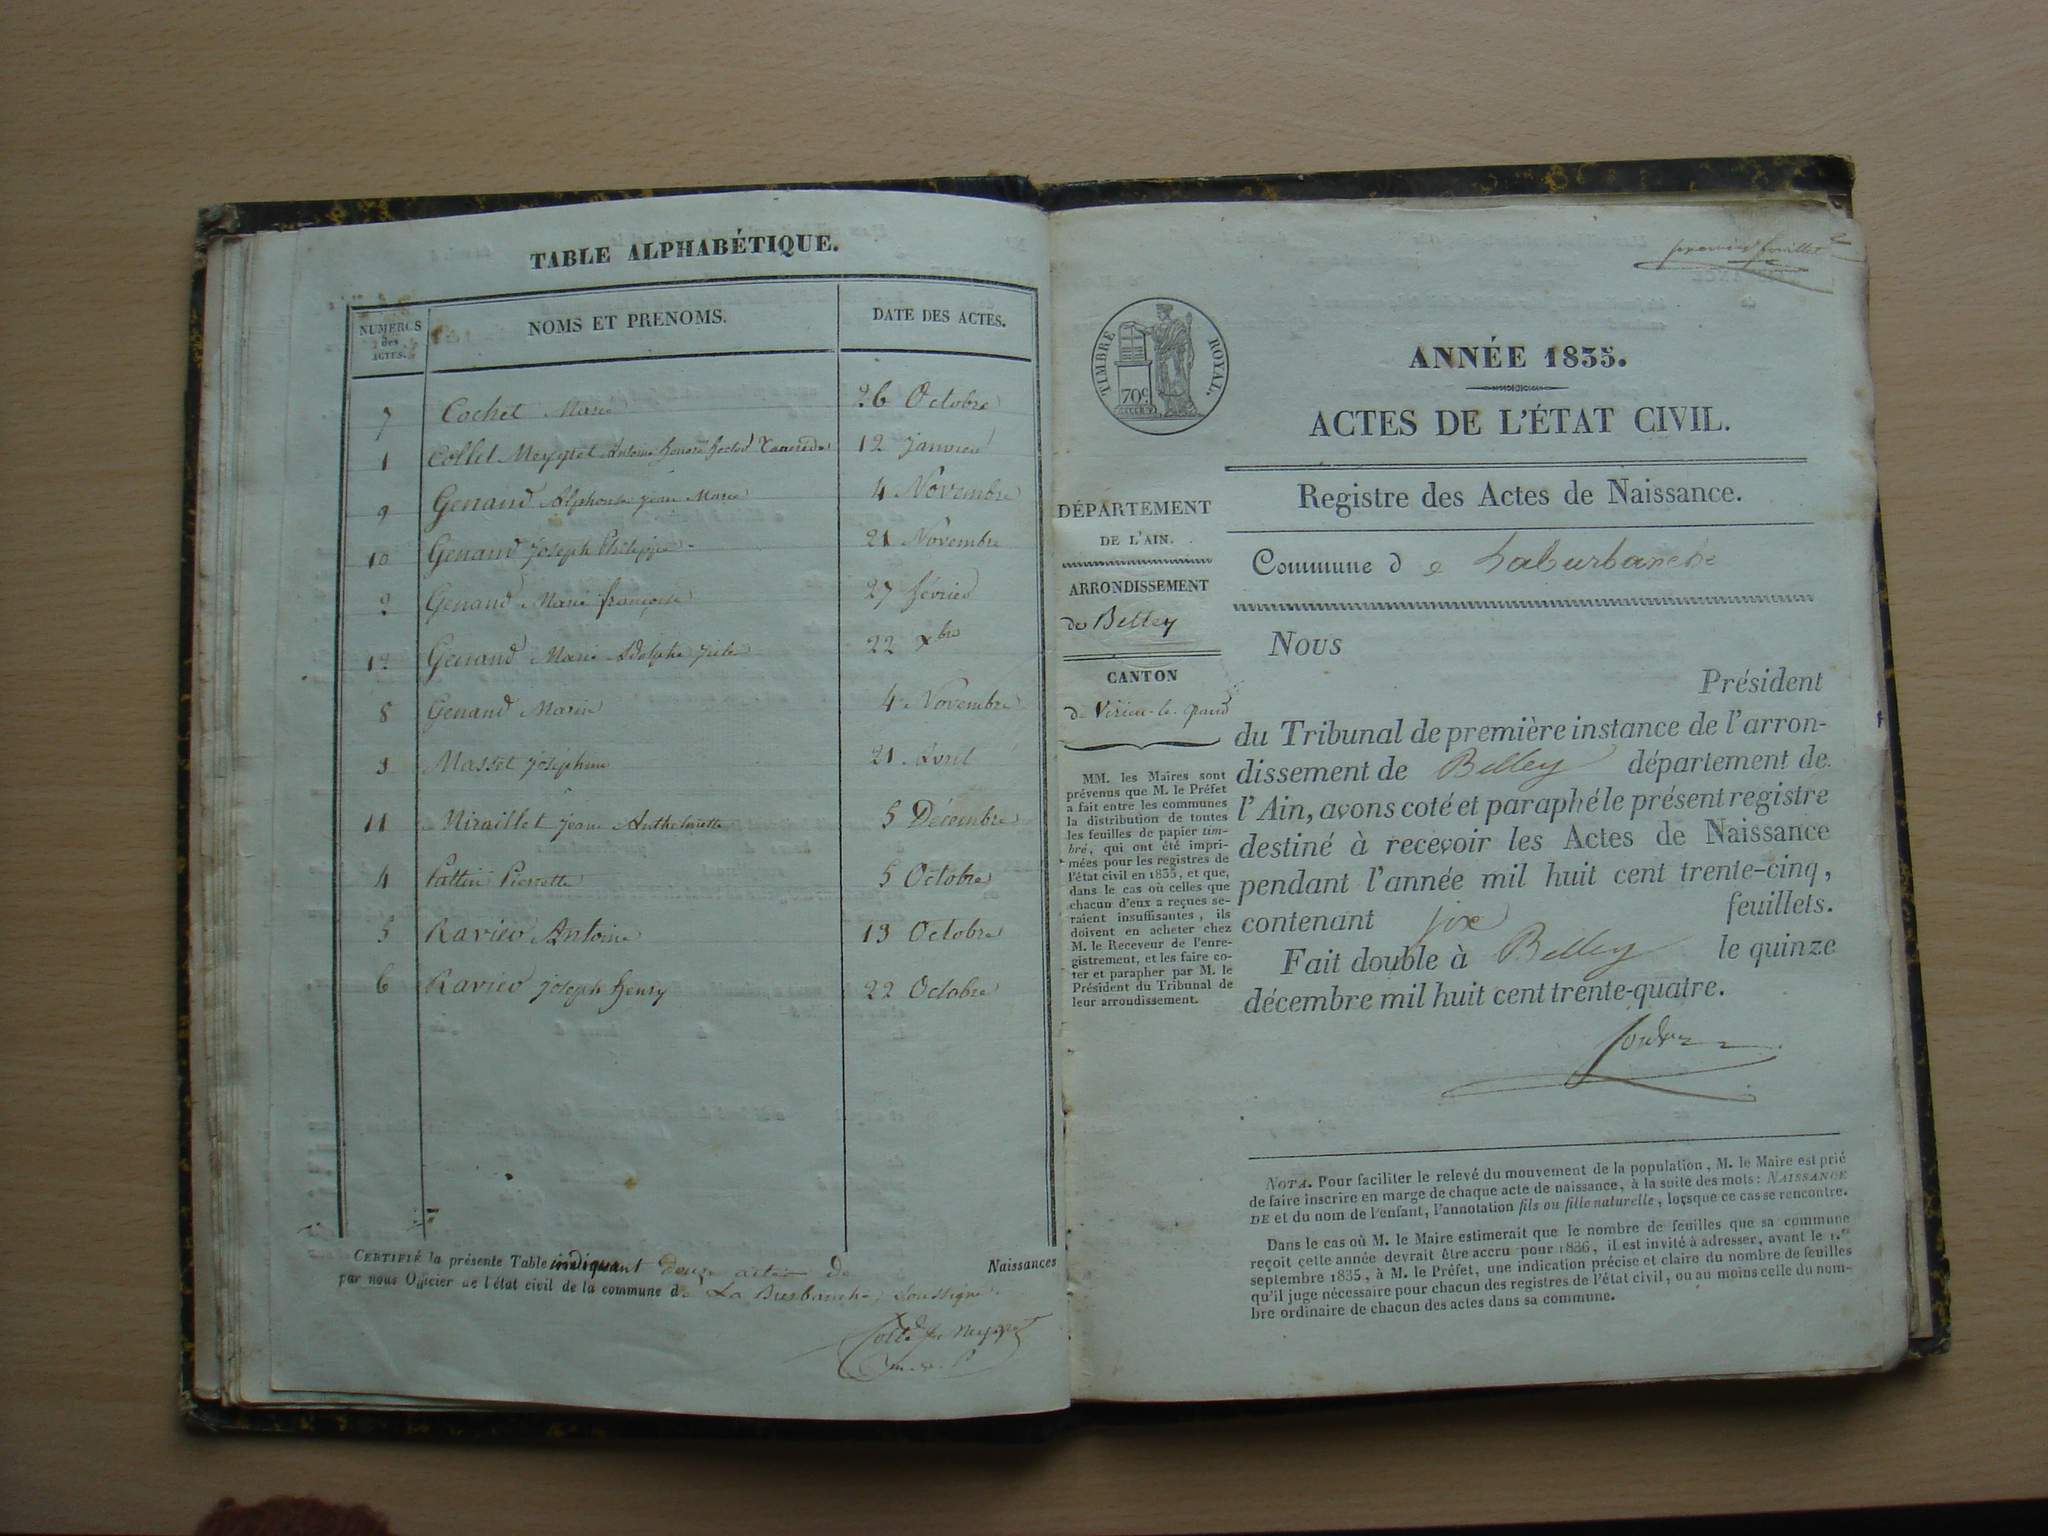 TABLE ALPHABÉTIQUE.
NUMÉROS des ACTES. NOMS ET PRENOMS. DATE DES ACTES.
7 Cochet Marie 26 Octobre
1 Collet Meygret Antoine honoré hector Tancrede 12 janvier
9 Genand Alphonse jean Marie 4 Novembre
10 Genand Joseph Philippe 21 Novembre
2 Genand Marie françoise 27 février
12 Genand Marie Adolphe jule 22 Xbre
8 Genand Marie 4 Novembre
3 Masset joséphine 21 Avril
11 Miraillet jeane Anthelmette 5 Décembre
4 Pattin Pierrette 5 Octobre
5 Ravier Antoine 13 Octobre
6 Ravier joseph henry 22 Octobre
CERTIFIÉ la présente Table indiquant douze actes de Naissances
par nous Officier de l'état civil de la commune de La Burbanche, Soussigné.
premier feuillet
TIMBRE ROYAL.
70c.
ANNÉE 1835.
ACTES DE L'ÉTAT CIVIL.
DÉPARTEMENT
DE L'AIN.
ARRONDISSEMENT
de Belley
CANTON
de Virieu-le-grand
MM. les Maires sont
prévenus que M. le Préfet
a fait entre les communes
la distribution de toutes
les feuilles de papier tim-
bré, qui ont été impri-
mées pour les registres de
l'état civil en 1835, et que,
dans le cas où celles que
chacun d'eux a reçues se-
raient insuffisantes, ils
doivent en acheter chez
M. le Receveur de l'enre-
gistrement, et les faire co-
ter et parapher par M. le
Président du Tribunal de
leur arrondissement.
Registre des Actes de Naissance.
Commune de Laburbanche
Nous
Président
du Tribunal de première instance de l'arron-
dissement de Belley département de
l'Ain, avons coté et paraphé le présent registre
destiné à recevoir les Actes de Naissance
pendant l'année mil huit cent trente-cinq,
contenant six feuillets.
Fait double à Belley le quinze
décembre mil huit cent trente-quatre.
NOTA. Pour faciliter le relevé du mouvement de la population, M. le Maire est prié
de faire inscrire en marge de chaque acte de naissance, à la suite des mots: NAISSANCE
DE et du nom de l'enfant, l'annotation fils ou fille naturelle, lorsque ce cas se rencontre.
Dans le cas où M. le Maire estimerait que le nombre de feuilles que sa commune
reçoit cette année devrait être accru pour 1836, il est invité à adresser, avant le 1.er
septembre 1835, à M. le Préfet, une indication précise et claire du nombre de feuilles
qu'il juge nécessaire pour chacun des registres de l'état civil, ou au moins celle du nom-
bre ordinaire de chacun des actes dans sa commune.